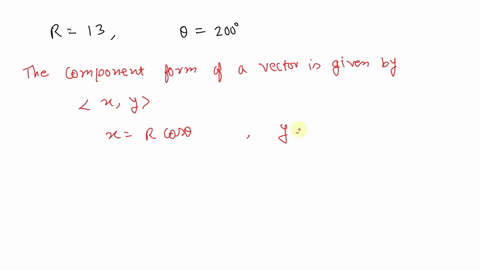 R = 13, θ = 200°
The component form of a vector is given by
< x, y >
x = R cosθ , y =